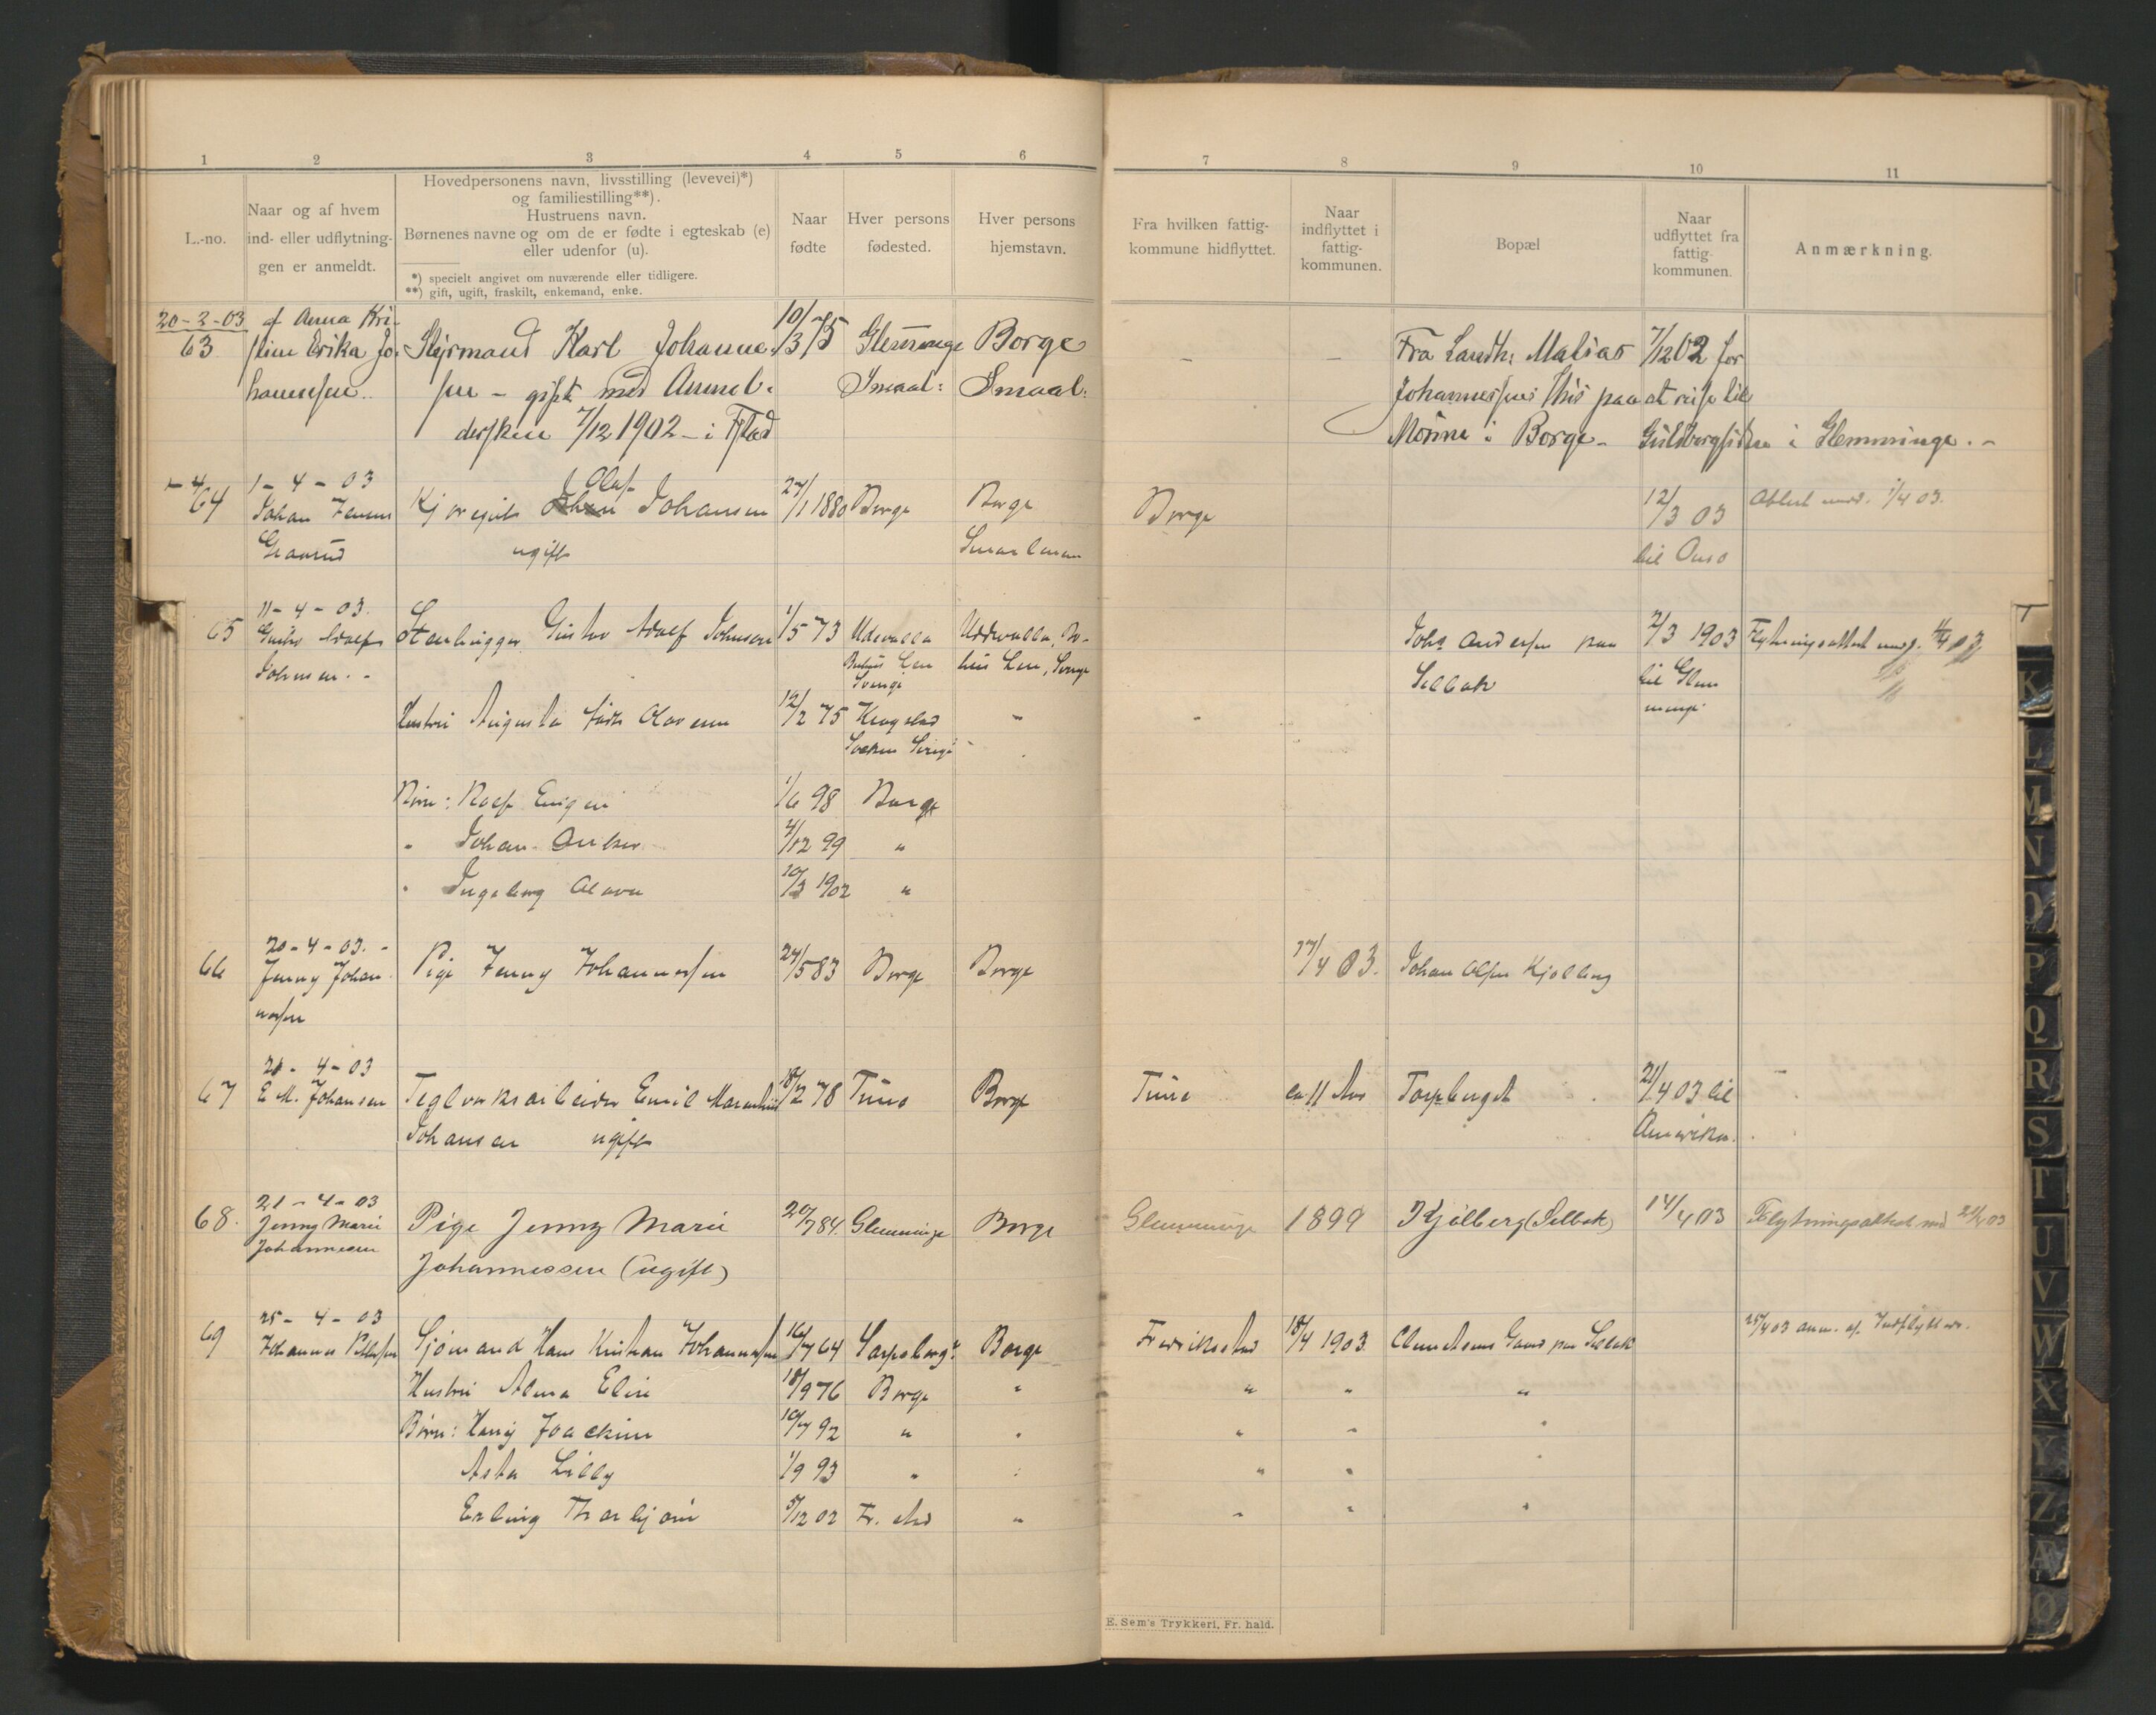 1 2 3 4 5 6 7 8 9 10 11
L.-no.
Naar og af hvem
ind- eller udflytnin-
gen er anmeldt.
Hovedpersonens navn, livsstilling (levevei)*)
og familiestilling**).
Hustruens navn.
Børnenes navne og om de er fødte i egteskab (e)
eller udenfor (u).
*) specielt angivet om nuværende eller tidligere.
**) gift, ugift, fraskilt, enkemand, enke.
Naar
fødte
Hver persons
fødested.
Hver persons
hjemstavn.
Fra hvilken fattig-
kommune hidflyttet.
Naar
indflyttet i
fattig-
kommunen.
Bopæl
Naar
udflyttet fra
fattig-
kommunen.
Anmærkning.
20-2-03 af Anna Kri-
63 stine Erika Jo- Styrmand Karl Johanne- 10/3 75 Glemminge Borge — — Fra Landh. Matias 7/12 02 for
hannessen.. sen - gift med Anmel- Smaal: Smaal: Johannessens Hus paa at reise til
dersken 7/12 1902 - i Fstad Mörine i Borge - Guldbergsiden i Glemminge. -
1-4-03 Olaf
64 Johan Jensen Kjøregut Johansen 27/1 1880 Borge Borge Borge 12/3 03 Attest medd. 1/4 03.
Graarud ugift Smaalenene til Onsø
11-4-03.
65 Gustav Adolf Stenhugger Gustav Adolf Johnsen 1/5 73 Udevalla Uddevalla, Bo- Johs Andersen paa 2/3 1903 Flytningsattest medd. 11/4 03
Johnsen. - Bohus Len hus Len, Sverige Selbak til Glem-
Sverige minge
Hustru Augusta født Olavesen 12/2 75 Krogstad " "
Socken Sverige
Børn: Rolf Eugen 1/6 98 Borge
" Johan Anker 4/12 99 "
" Ingeborg Olava 10/3 1902 "
20-4-03. -
66 Jenny Johan- Pige Jenny Johannessen 24/5 83 Borge Borge 17/4 03. Johan Olsen Kjølberg
nessen
20-4-03
67 E. M. Johansen Teglverksarbeider Emil Marentius 18/2 78 Tune Borge Tune ca 11 Aar Torpberget 21/4 03 til
Johansen ugift Amerika.
21-4-03
68. Jenny Marie Pige Jenny Marie 20/7 84. Glemminge Borge Glemminge 1899 Kjølberg (Selbak) 14/4 03 Flytningsattest med 21/4 03
Johannessen Johannessen (ugift)
25-4-03
69 Johannes Pettersen Sjømand Hans Kristian Johannessen 16/7 64 Sarpsborg Borge Fredrikstad 18/4 1903. Clemetsens Gaard paa Selbak 25/4 03 anm. af Indflytteren.
Hustru Alma Elise 18/9 76 Borge " " " "
Børn: Harry Joackim 10/7 92 " " " " "
Asta Lilly 1/9 93 " " " " "
Erling Thorbjørn 5/12 02 Fr. stad " " " "
E. Sem's Trykkeri, Fr. hald.
K
L
M
N
O
P
Q
R
S
T
U
V
W
X
Y
Z
Æ
Ø